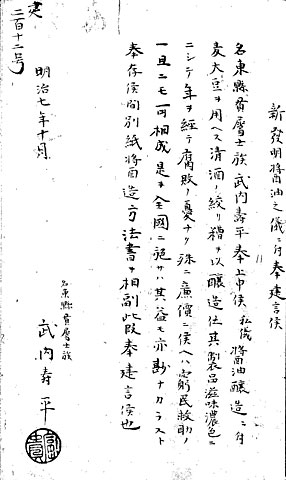 新發明醤油之儀ニ付奉建言候
名東縣貫属士族武内壽平奉上申候私儀醤油醸造ニ付
麦大豆ヲ用ヘス清酒ノ絞リ糟ヲ以醸造仕其製品滋味濃色ニ
ニシテ年ヲ経テ腐敗ノ憂ナク殊ニ廉價ニ候ヘハ窮民救助ノ
一旦ニモ可相成是ヲ全國ニ施サハ其益モ亦尠ナカラスト
奉存候間別紙醤油造方法書ヲ相副此段奉建言候也
名東縣貫属士族
武内寿平
明治七年十月
二百十二号